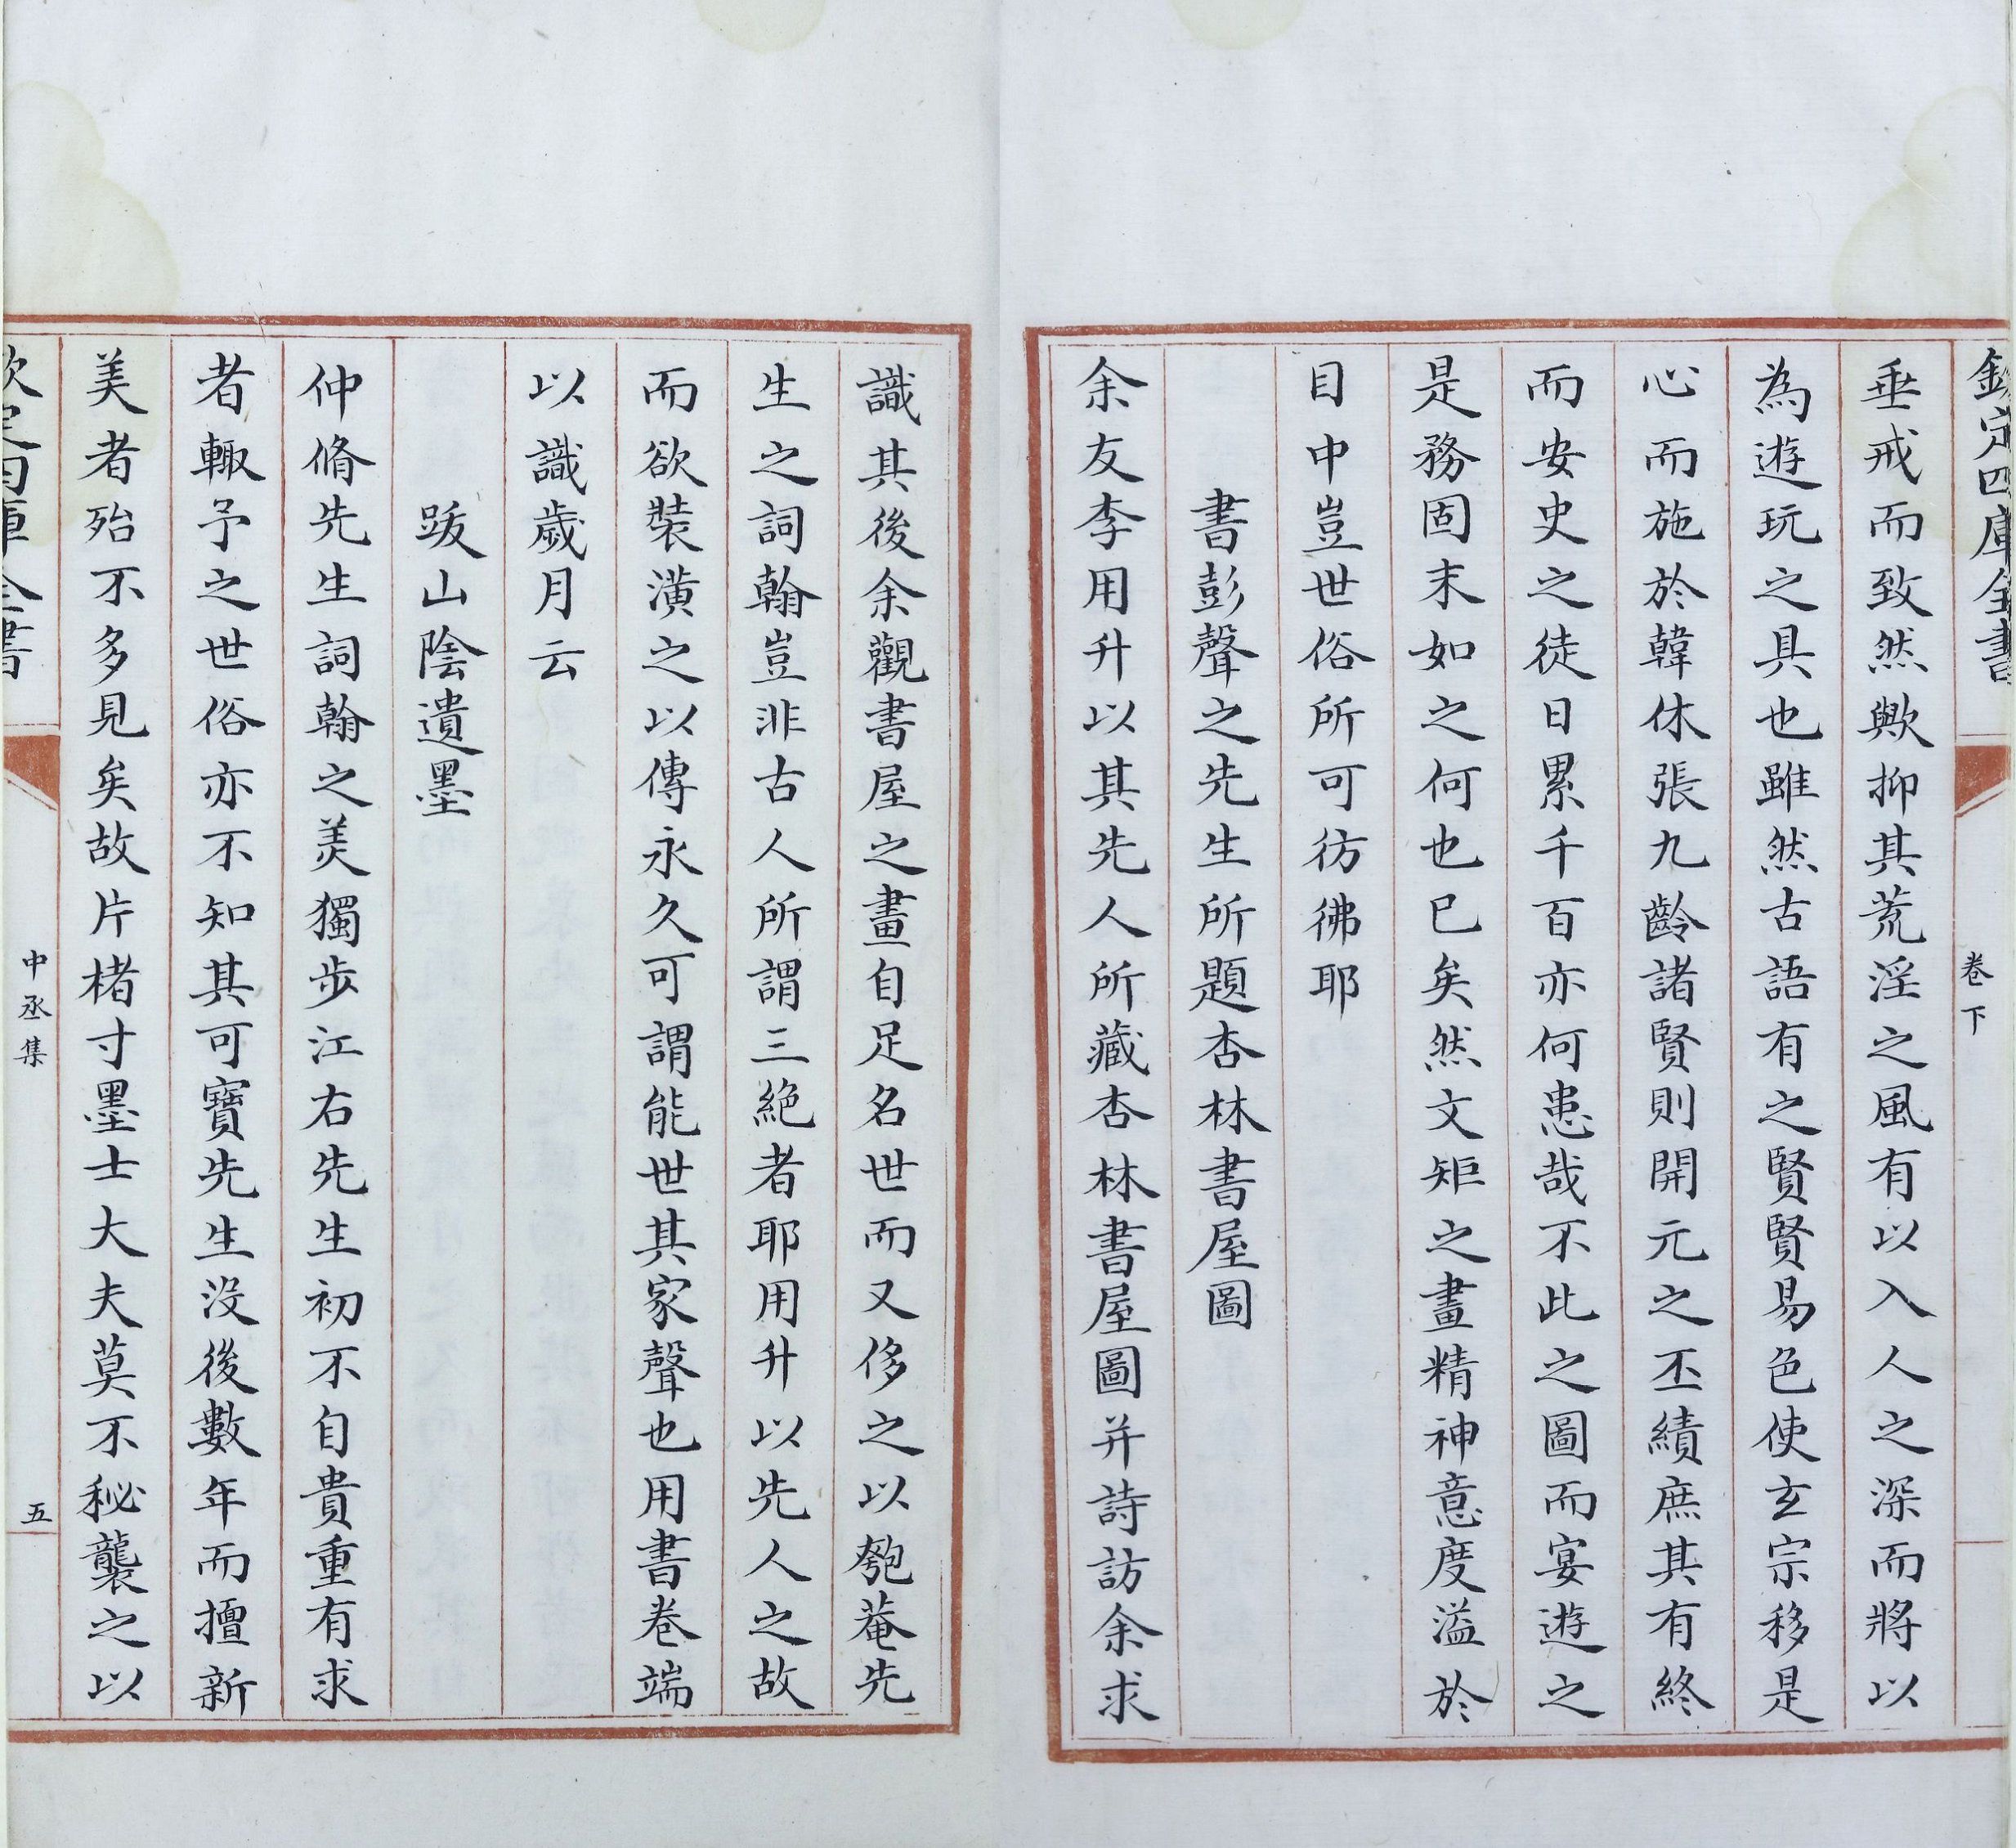 欽定四庫全書
卷下
垂戒而致然歟抑其荒淫之風有以入人之深而將以
為遊玩之具也雖然古語有之賢賢易色使玄宗移是
心而施於韓休張九齡諸賢則開元之丕績庶其有終
而安史之徒日累千百亦何患哉不此之圖而宴遊之
是務固末如之何也已矣然文矩之畫精神意度溢於
目中豈世俗所可彷彿耶
書彭聲之先生所題杏林書屋圖
余友李用升以其先人所藏杏林書屋圖并詩訪余求
識其後余觀書屋之畫自足名世而又侈之以匏菴先
生之詞翰豈非古人所謂三絕者耶用升以先人之故
而欲裝潢之以傳永久可謂能世其家聲也用書卷端
以識歲月云
跋山陰遺墨
仲脩先生詞翰之美獨步江右先生初不自貴重有求
者輙予之世俗亦不知其可寶先生沒後數年而擅新
美者殆不多見矣故片楮寸墨士大夫莫不秘襲之以
欽定四庫全書
中丞集
五